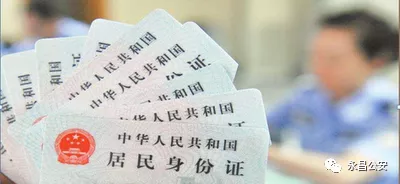 中华人民共和国
中华人民共和国
中华人民共和国
居民身份证
中华人民共和国
居民身份证
永昌公安